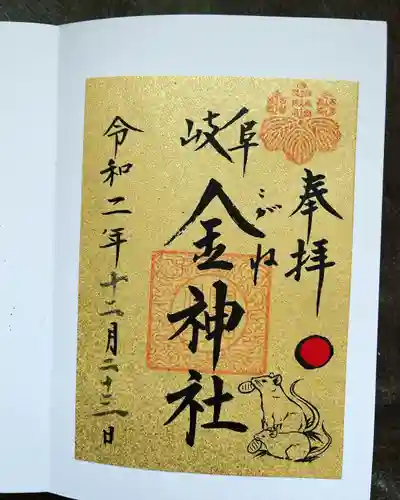 奉拝
岐阜
金神社
こがね
令和二年十二月二十三日